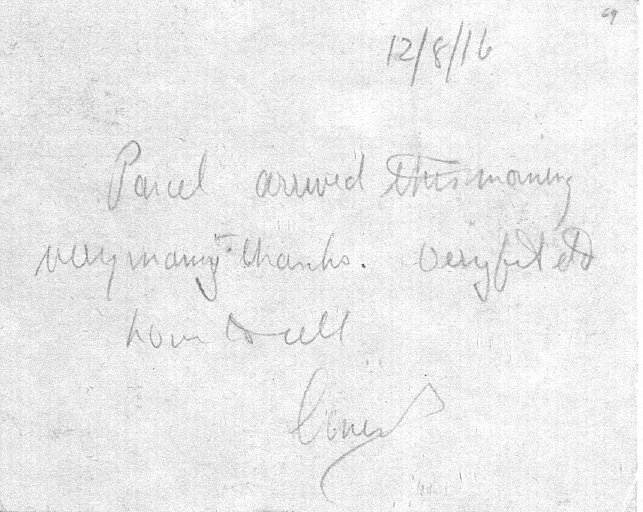 69
12/8/16
Parcel arrived this morning
very many thanks. Very fit etc
love to all